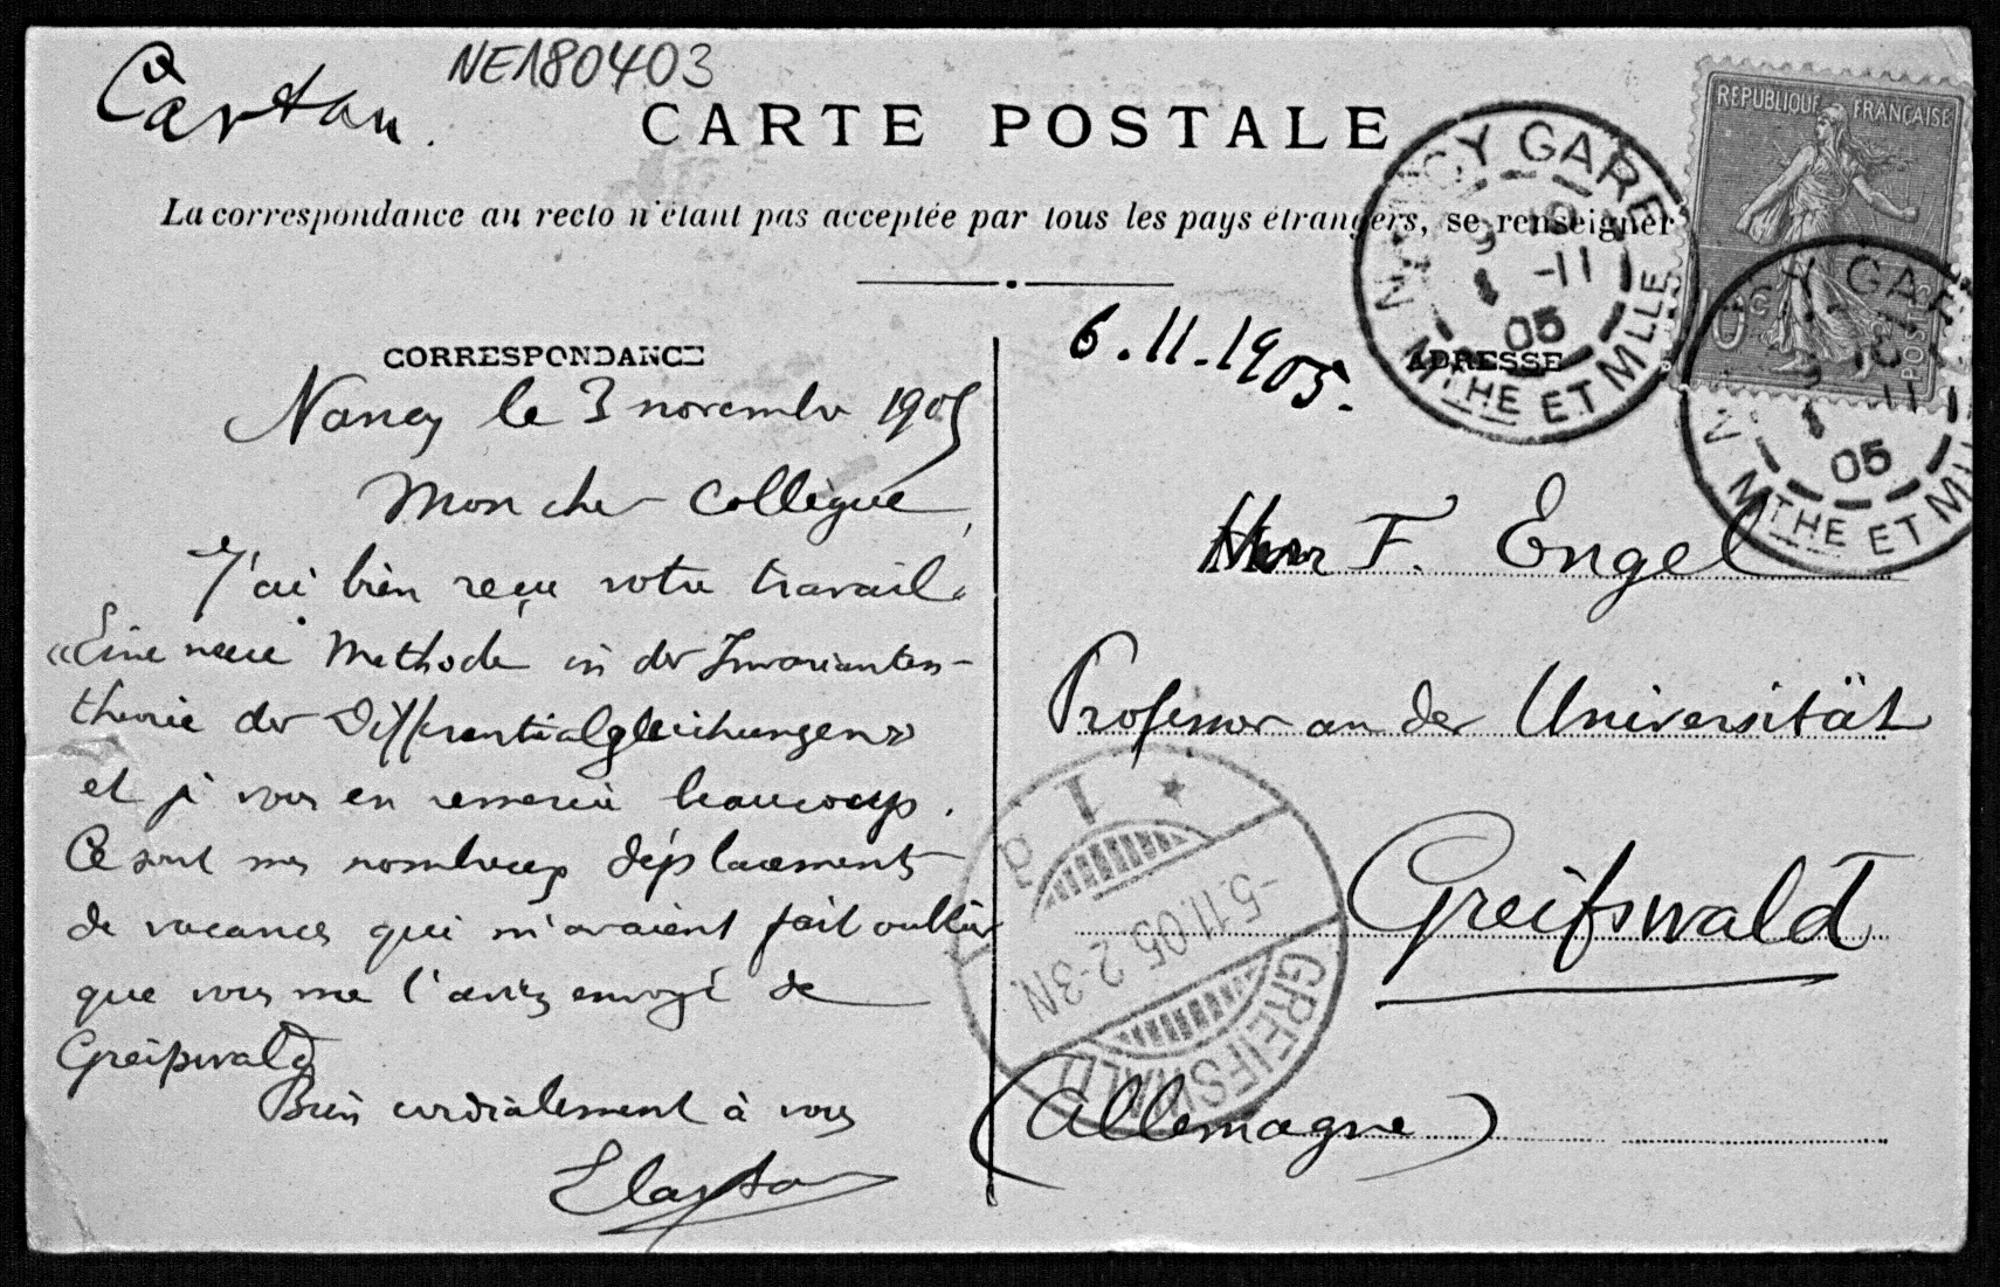 Cartan.
NE180403
CARTE POSTALE
La correspondance au recto n'étant pas acceptée par tous les pays étrangers, se renseigner
REPUBLIQUE FRANÇAISE
POSTES
NANCY GARE
-11
05
MTHE ET MLLE
NANCY GARE
11
05
MTHE ET M
CORRESPONDANCE
Nancy le 3 novembre 1905
Mon cher Collègue,
J'ai bien reçu votre travail
«Eine neue Methode in der Invarianten-
theorie der Differentialgleichungen»
et je vous en remercie beaucoup.
Ce sont mes nombreux déplacements
de vacances qui m'avaient fait oublier
que vous me l'aviez envoyé de
Greifswald
Bien cordialement à vous
E Cartan
6.11.1905.
ADRESSE
Herr F. Engel
Professor an der Universität
Greifswald
(Allemagne)
GREIFSWALD
-5.11.05.2-3N.
1 a